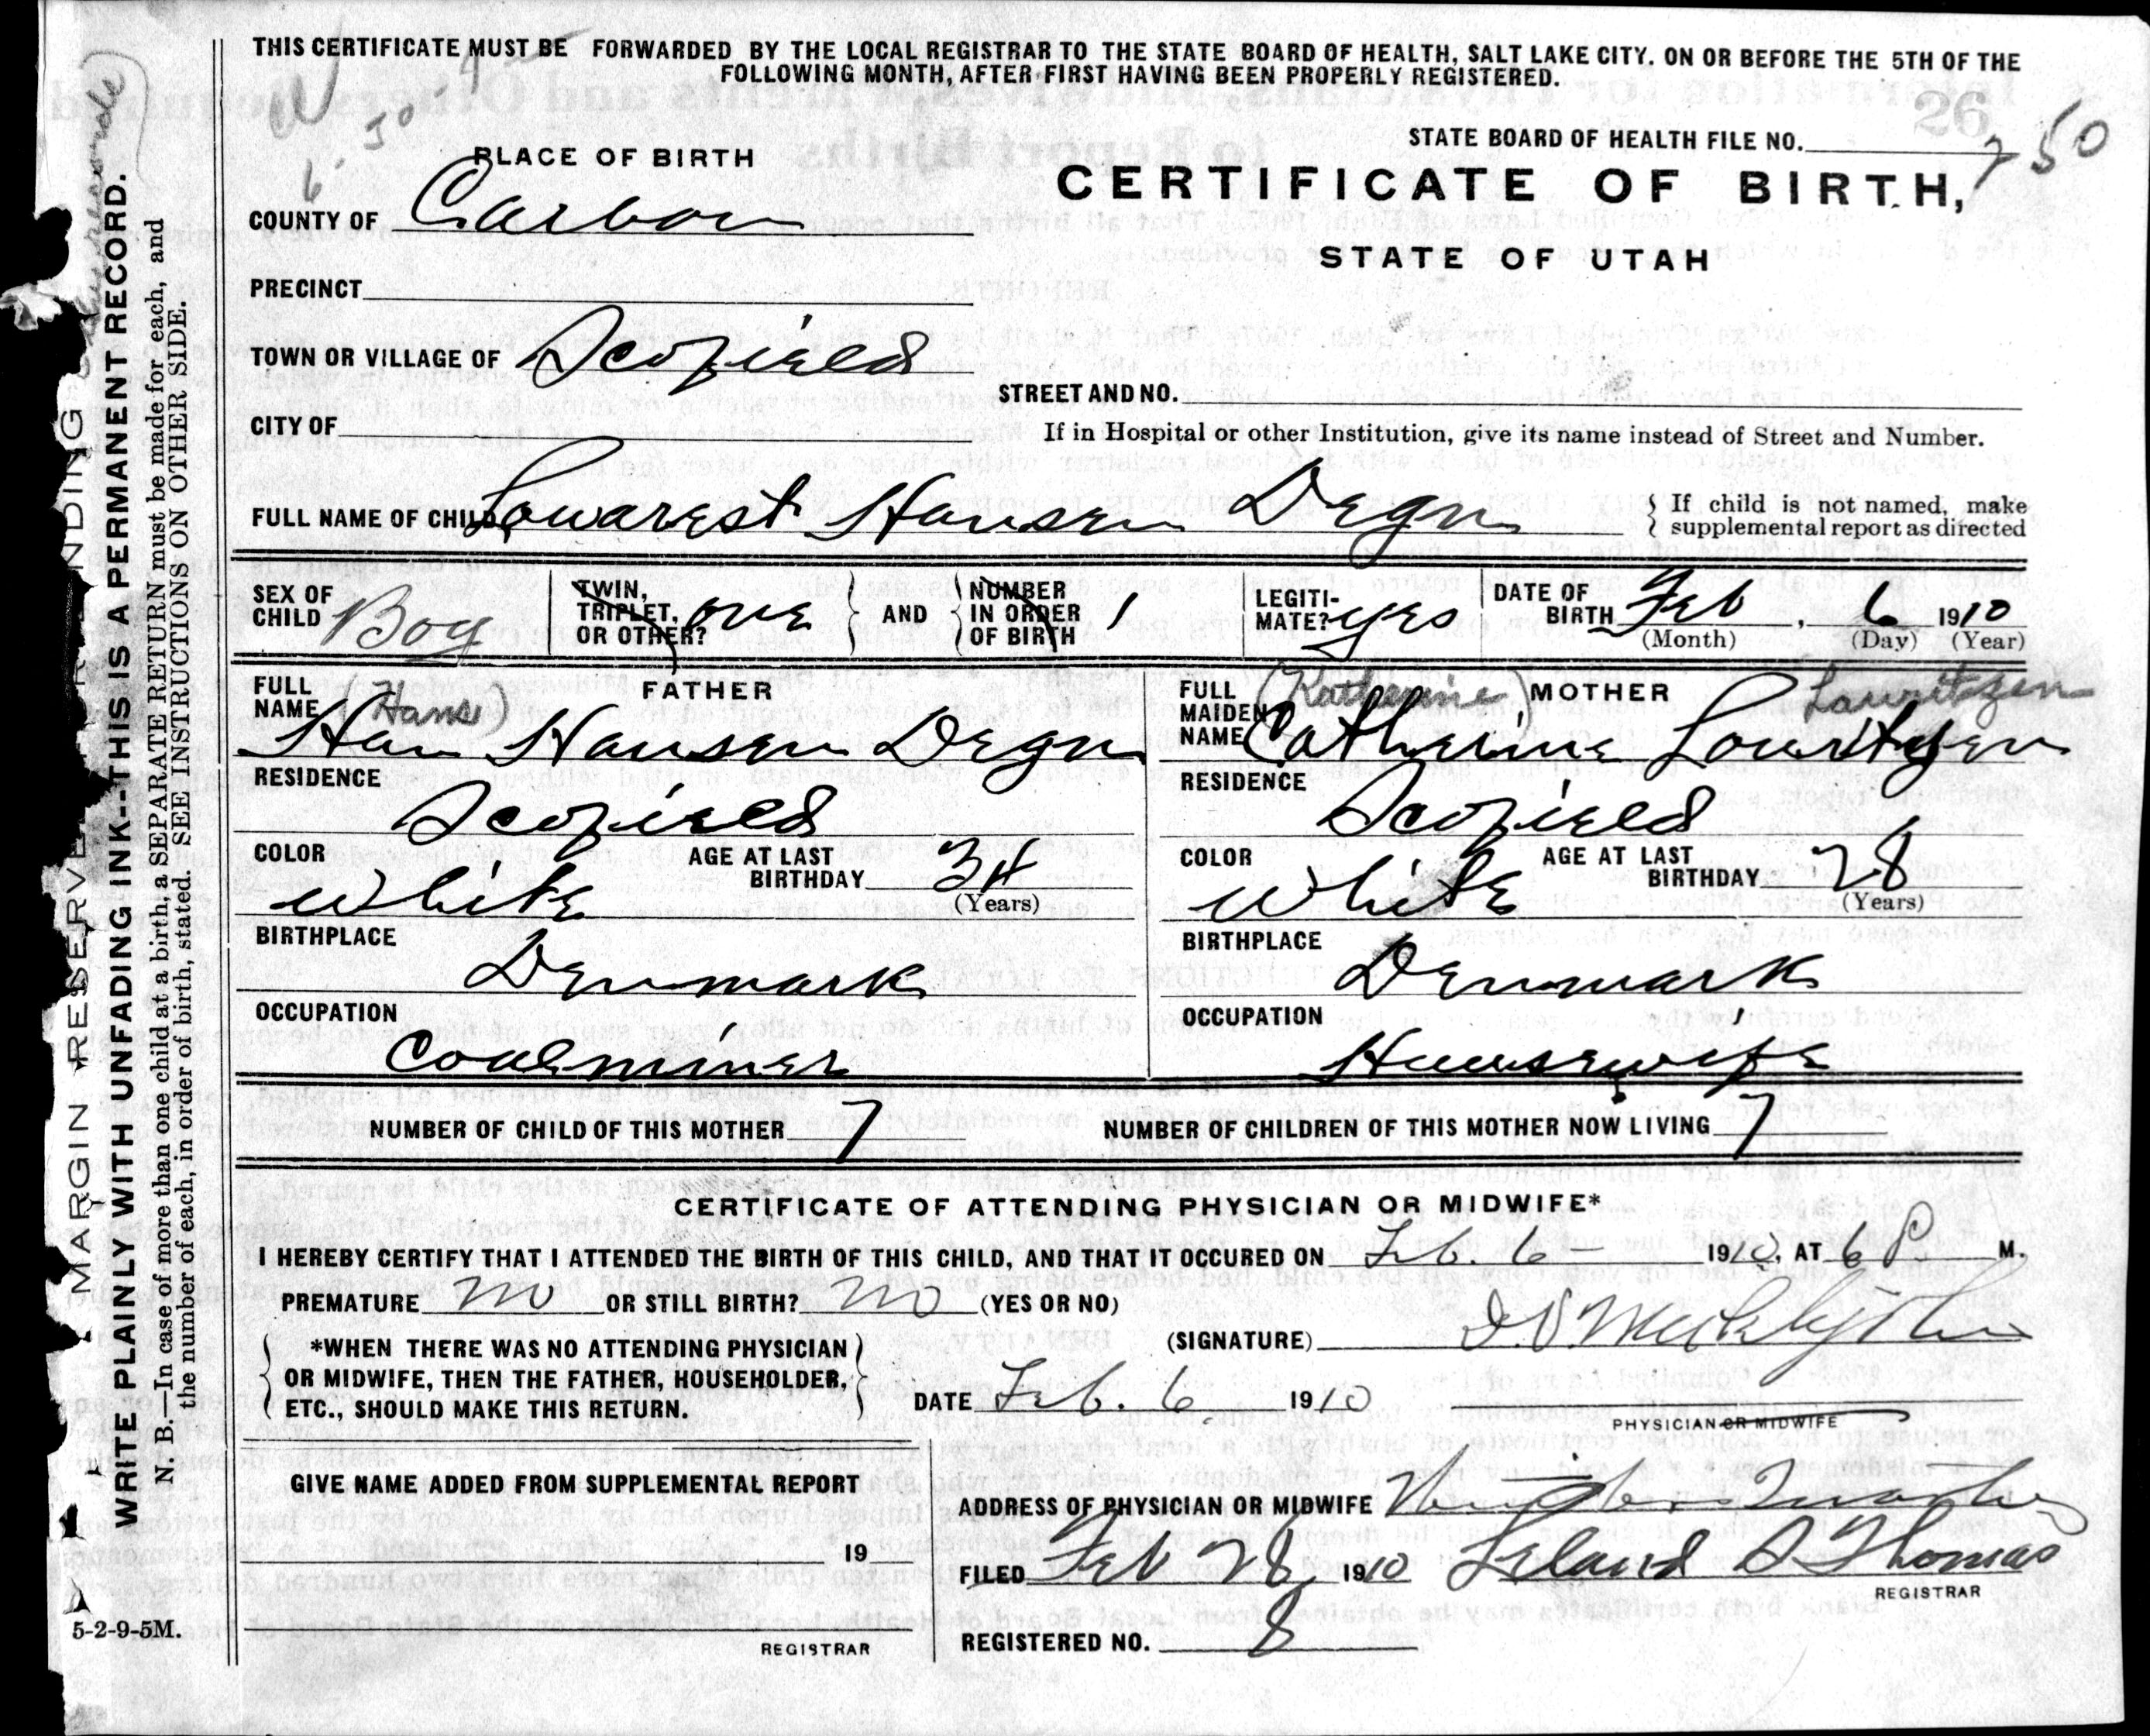 THIS CERTIFICATE MUST BE FORWARDED BY THE LOCAL REGISTRAR TO THE STATE BOARD OF HEALTH, SALT LAKE CITY. ON OR BEFORE THE 5TH OF THE
FOLLOWING MONTH, AFTER FIRST HAVING BEEN PROPERLY REGISTERED.
26
STATE BOARD OF HEALTH FILE NO. 250
PLACE OF BIRTH
CERTIFICATE OF BIRTH,
STATE OF UTAH
COUNTY OF Carbon
PRECINCT
TOWN OR VILLAGE OF Scofield
STREET AND NO.
CITY OF
If in Hospital or other Institution, give its name instead of Street and Number.
FULL NAME OF CHILD Lowarest Hansen Degn
{ If child is not named, make
supplemental report as directed
SEX OF CHILD Boy
TWIN, TRIPLET, OR OTHER? one } AND { NUMBER IN ORDER OF BIRTH 1
LEGITI-MATE? yes
DATE OF BIRTH Feb, 6 1910
(Month) (Day) (Year)
FULL NAME (Hans) FATHER
Han Hansen Degn
FULL MAIDEN NAME (Katherine) MOTHER Lauritzen
Catherine Louritzen
RESIDENCE Scofield
RESIDENCE Scofield
COLOR White AGE AT LAST BIRTHDAY 34 (Years)
COLOR White AGE AT LAST BIRTHDAY 28 (Years)
BIRTHPLACE Denmark
BIRTHPLACE Denmark
OCCUPATION Coalminer
OCCUPATION Housewife
NUMBER OF CHILD OF THIS MOTHER 7
NUMBER OF CHILDREN OF THIS MOTHER NOW LIVING 7
CERTIFICATE OF ATTENDING PHYSICIAN OR MIDWIFE*
I HEREBY CERTIFY THAT I ATTENDED THE BIRTH OF THIS CHILD, AND THAT IT OCCURED ON Feb. 6- 1910, AT 6 P M.
PREMATURE no OR STILL BIRTH? no (YES OR NO)
*WHEN THERE WAS NO ATTENDING PHYSICIAN
OR MIDWIFE, THEN THE FATHER, HOUSEHOLDER,
ETC., SHOULD MAKE THIS RETURN.
(SIGNATURE)
DATE Feb. 6. 1910
PHYSICIAN OR MIDWIFE
GIVE NAME ADDED FROM SUPPLEMENTAL REPORT
19
REGISTRAR
ADDRESS OF PHYSICIAN OR MIDWIFE Winter Quarters
FILED Feb 28, 1910 Leland S Thomas
REGISTRAR
REGISTERED NO. 8
MARGIN RESERVE NDING
WRITE PLAINLY WITH UNFADING INK--THIS IS A PERMANENT RECORD.
N. B.—In case of more than one child at a birth, a SEPARATE RETURN must be made for each, and
the number of each, in order of birth, stated. SEE INSTRUCTIONS ON OTHER SIDE.
5-2-9-5M.